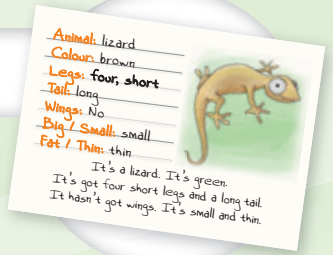 Animal: lizard
Colour: brown
Legs: four, short
Tail: long
Wings: No
Big / Small: small
Fat / Thin: thin
It's a lizard. It's green.
It's got four short legs and a long tail.
It hasn't got wings. It's small and thin.